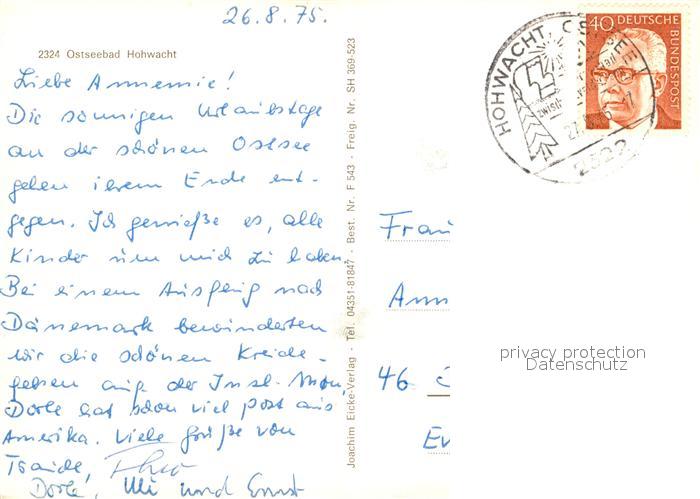 26.8.75.
2324 Ostseebad Hohwacht
Liebe Annemie!
Die sonnigen Urlaubstage
an der schönen Ostsee
gehen ihrem Ende ent-
gegen. Ich genieße es, alle
Kinder um mich zu haben.
Bei einem Ausflug nach
Dänemark bewunderten
wir die schönen Kreide-
felsen auf der Insel Mön.
Dorle hat schon viel Post aus
Amerika. Viele Grüße von
Theo
Dorle, Uli und Ernst
Joachim Eicke-Verlag - Tel. 04351-81847 - Best. Nr. F 543 - Freig. Nr. SH 369-523
HOHWACHT, OSTSEE
2322
40 DEUTSCHE
BUNDESPOST
Frau
Ann
46
Ev
privacy protection
Datenschutz